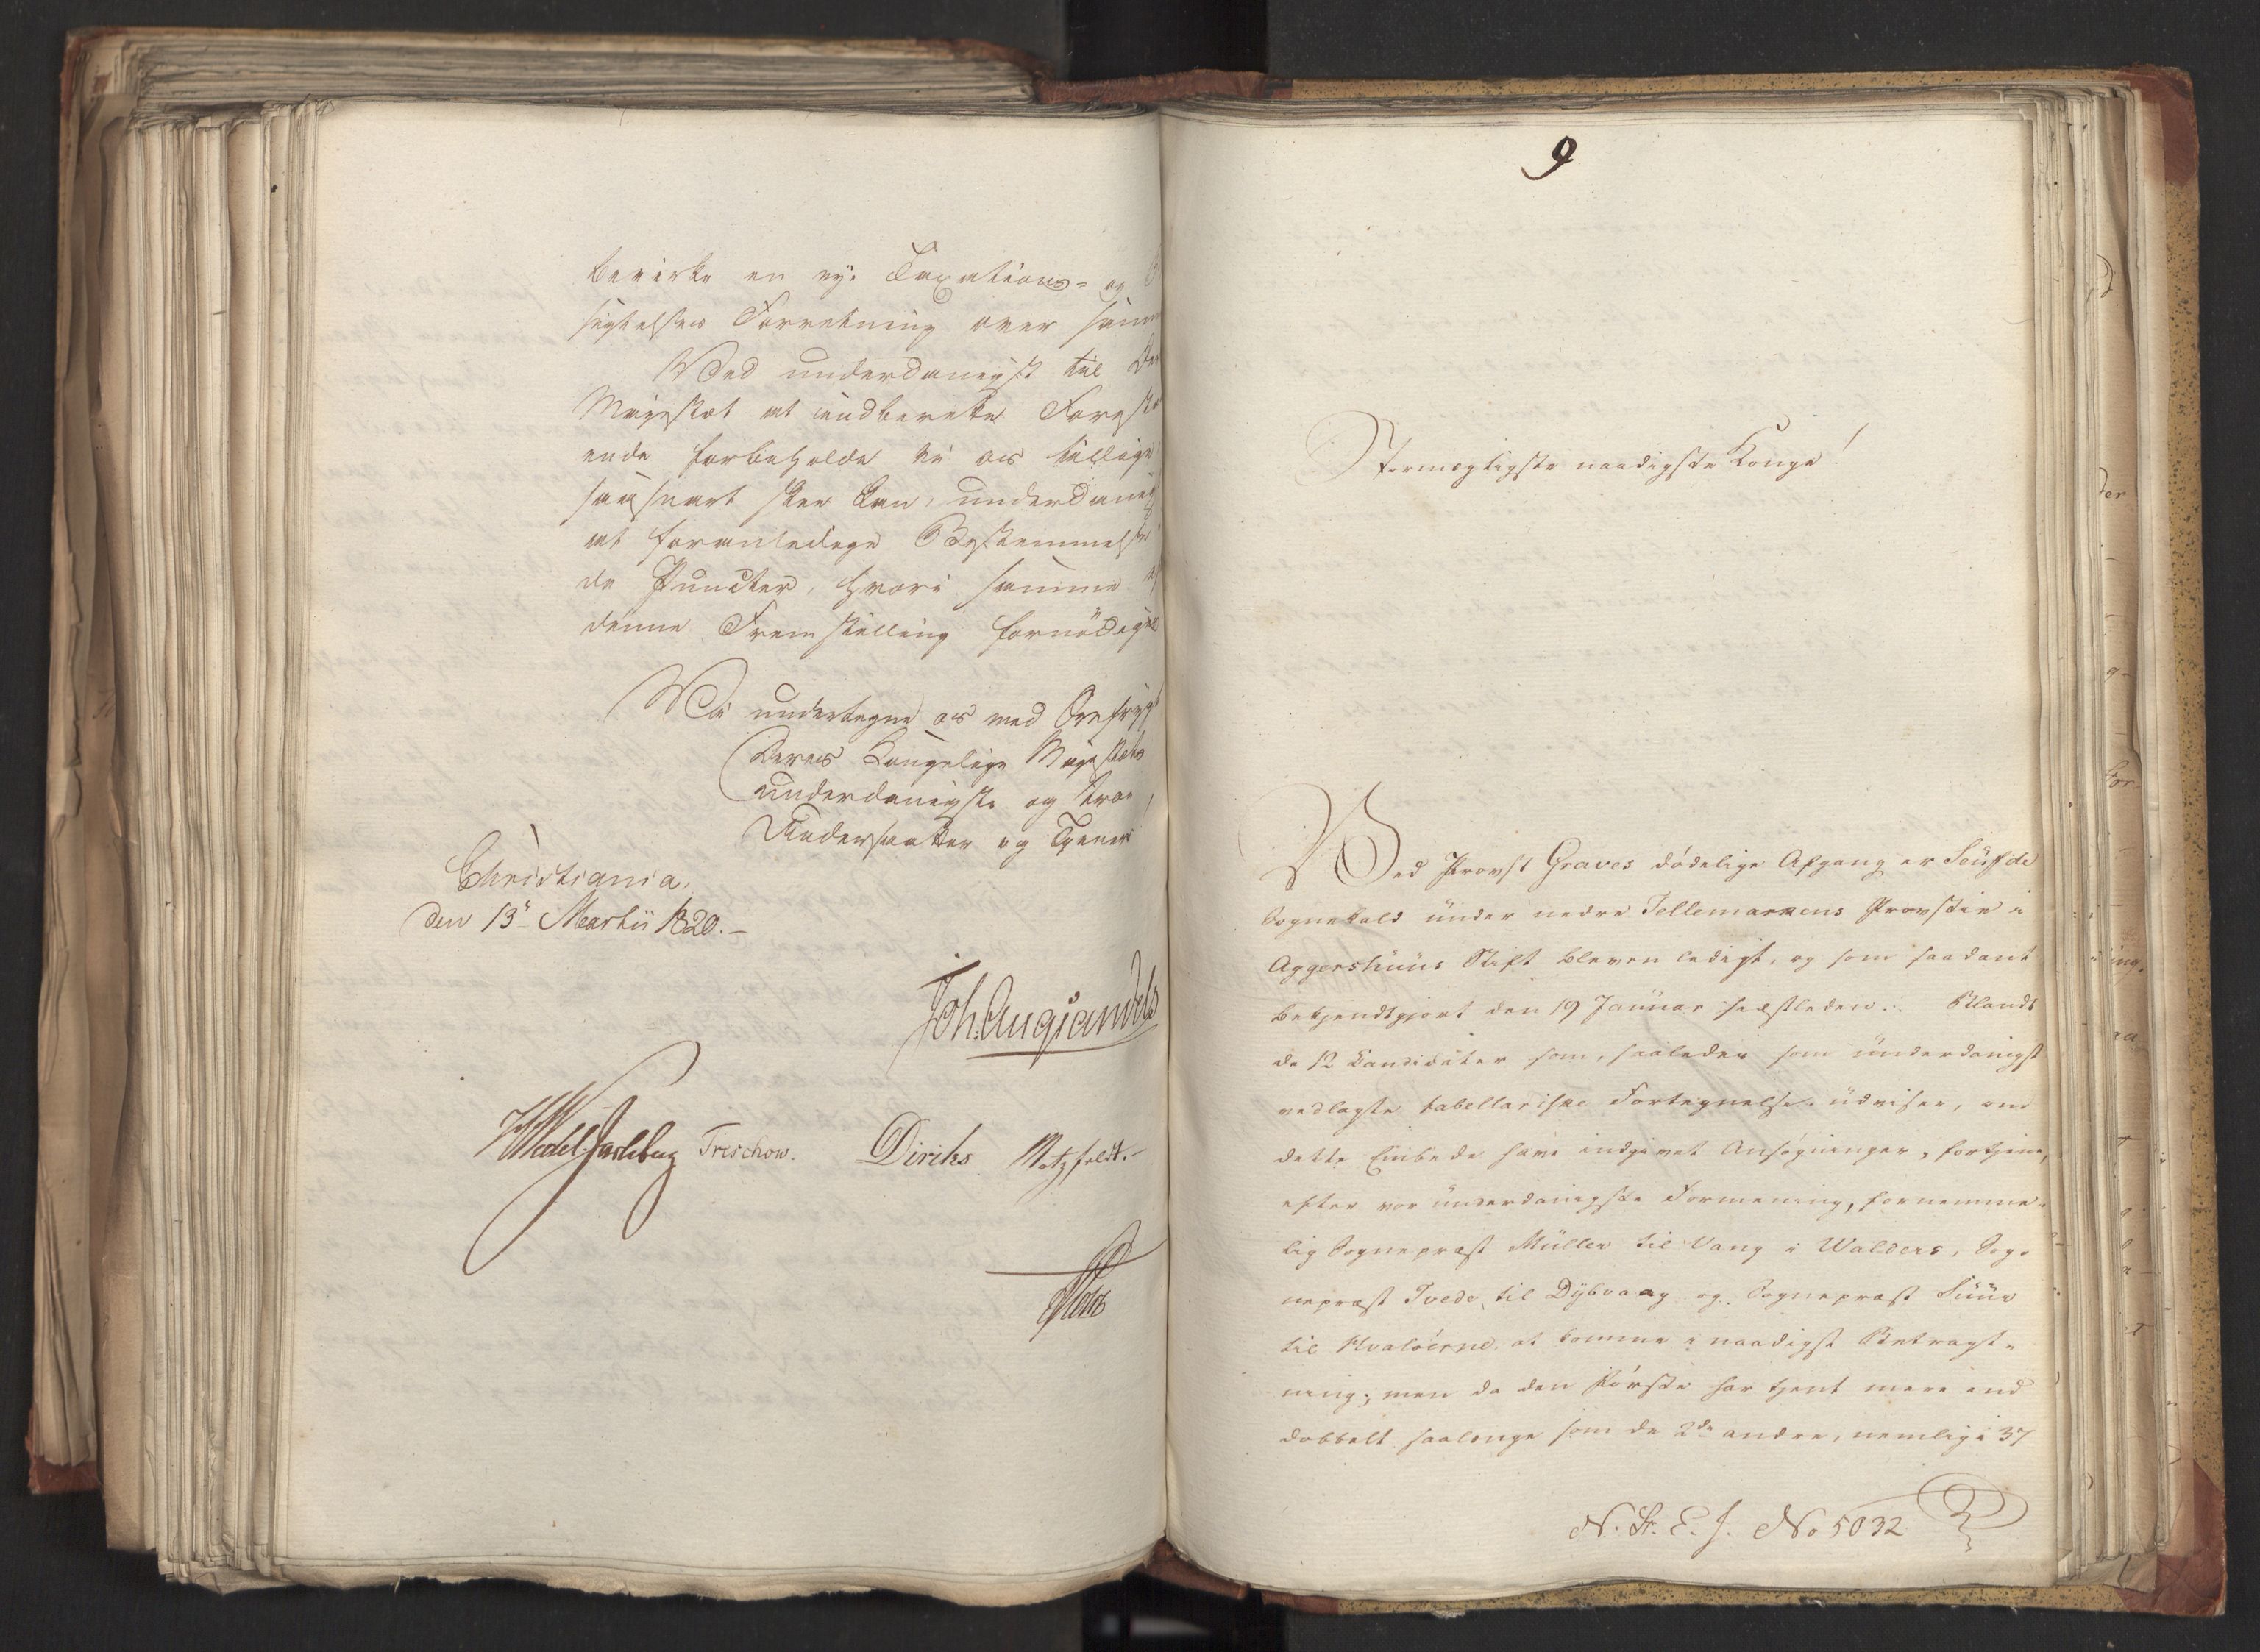 bevirke en nye Taxations- og
sigtelses Forretning over samm
Ved underdanigst til De
Majestæt at indberette Foresta
ende forbeholde vi os tillige
saasnart skee kan, underdanig
at foranledige Bestemmelse
de Puncter, hvori samme
denne Fremstilling fornödige
Vi undertegne os med Ærefrygt
Deres Kongelige Majestæts
underdanigste og troe
Undersaatter og Tjenere
Christiania,
den 13de Martii 1820.-
Joh. Aug Sandels
HWedel Jarlsberg Treschow. Diriks Motzfeldt.-
9
Stormægtigste naadigste Konge!
Ved Provst Graves dödelige Afgang er Seufde
Sognekald under nedre Tellemarkens Provstie i
Aggershuus Stift bleven ledigt, og som saadant
bekjendtgjort den 19 Januar sidstleden. Blandt
de 12 Candidater som, saaledes som underdanigst
vedlagte tabellariske Fortegnelse udviser, om
dette Embede have indgivet Ansögninger, fortjene,
efter vor underdanigste Formening, fornemme-
lig Sognepræst Müller til Vang i Walders, Sog-
nepræst Tvede til Dybvaag og Sognepræst
til Hvalöerne at komme i naadigst Betragt-
ning; men da den förste har tjent mere end
dobbelt saalænge som de 2de andre, nemlig i 37
N. St. E. J. No 5032